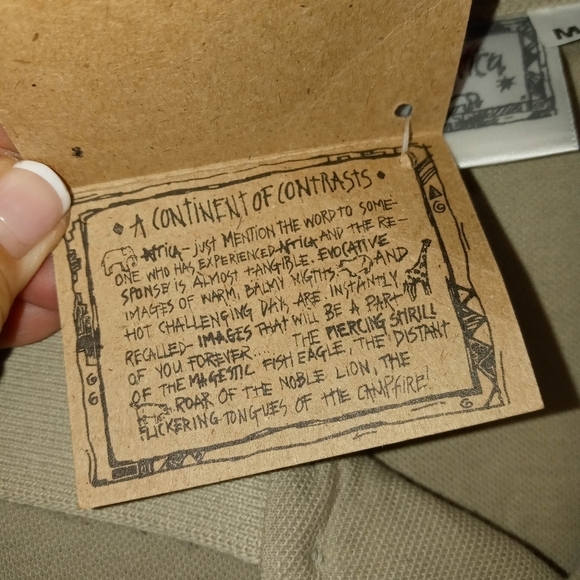 M
• A CONTINENT OF CONTRASTS •
AFRICA - JUST MENTION THE WORD TO SOME-
ONE WHO HAS EXPERIENCED AFRICA AND THE RE-
SPONSE IS ALMOST TANGIBLE. EVOCATIVE
IMAGES OF WARM, BALMY NIGHTS AND
HOT CHALLENGING DAYS ARE INSTANTLY
RECALLED- IMAGES THAT WILL BE A PART
OF YOU FOREVER.... THE PIERCING SHRILL
OF THE MAGESTIC FISH EAGLE, THE DISTANT
ROAR OF THE NOBLE LION, THE
FLICKERING TONGUES OF THE CAMPFIRE!